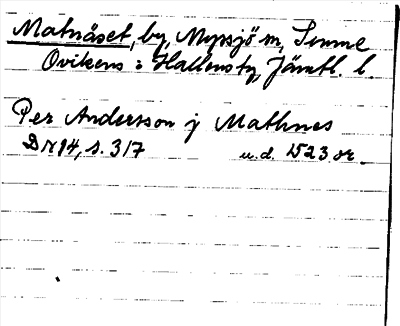 Matnäset, by, Myssjö sn, Sunne
Ovikens o Hallens tg, Jämtl. l.
Per Andersson j Mathnes
DN 94, s. 317 u.d. 1523 or.